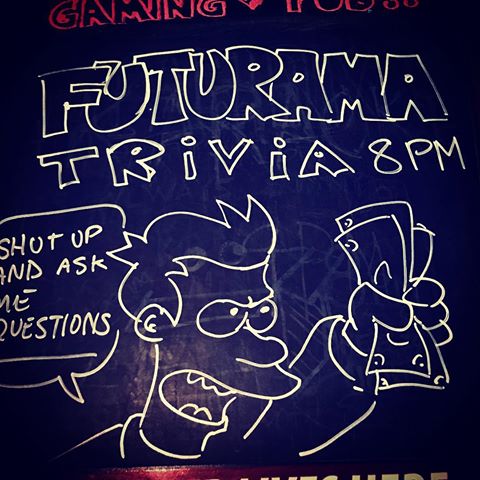 GAMING ♥ PUB!!
FUTURAMA
TRiViA 8PM
SHUT UP
AND ASK
ME
QUESTIONS
LIVES HERE